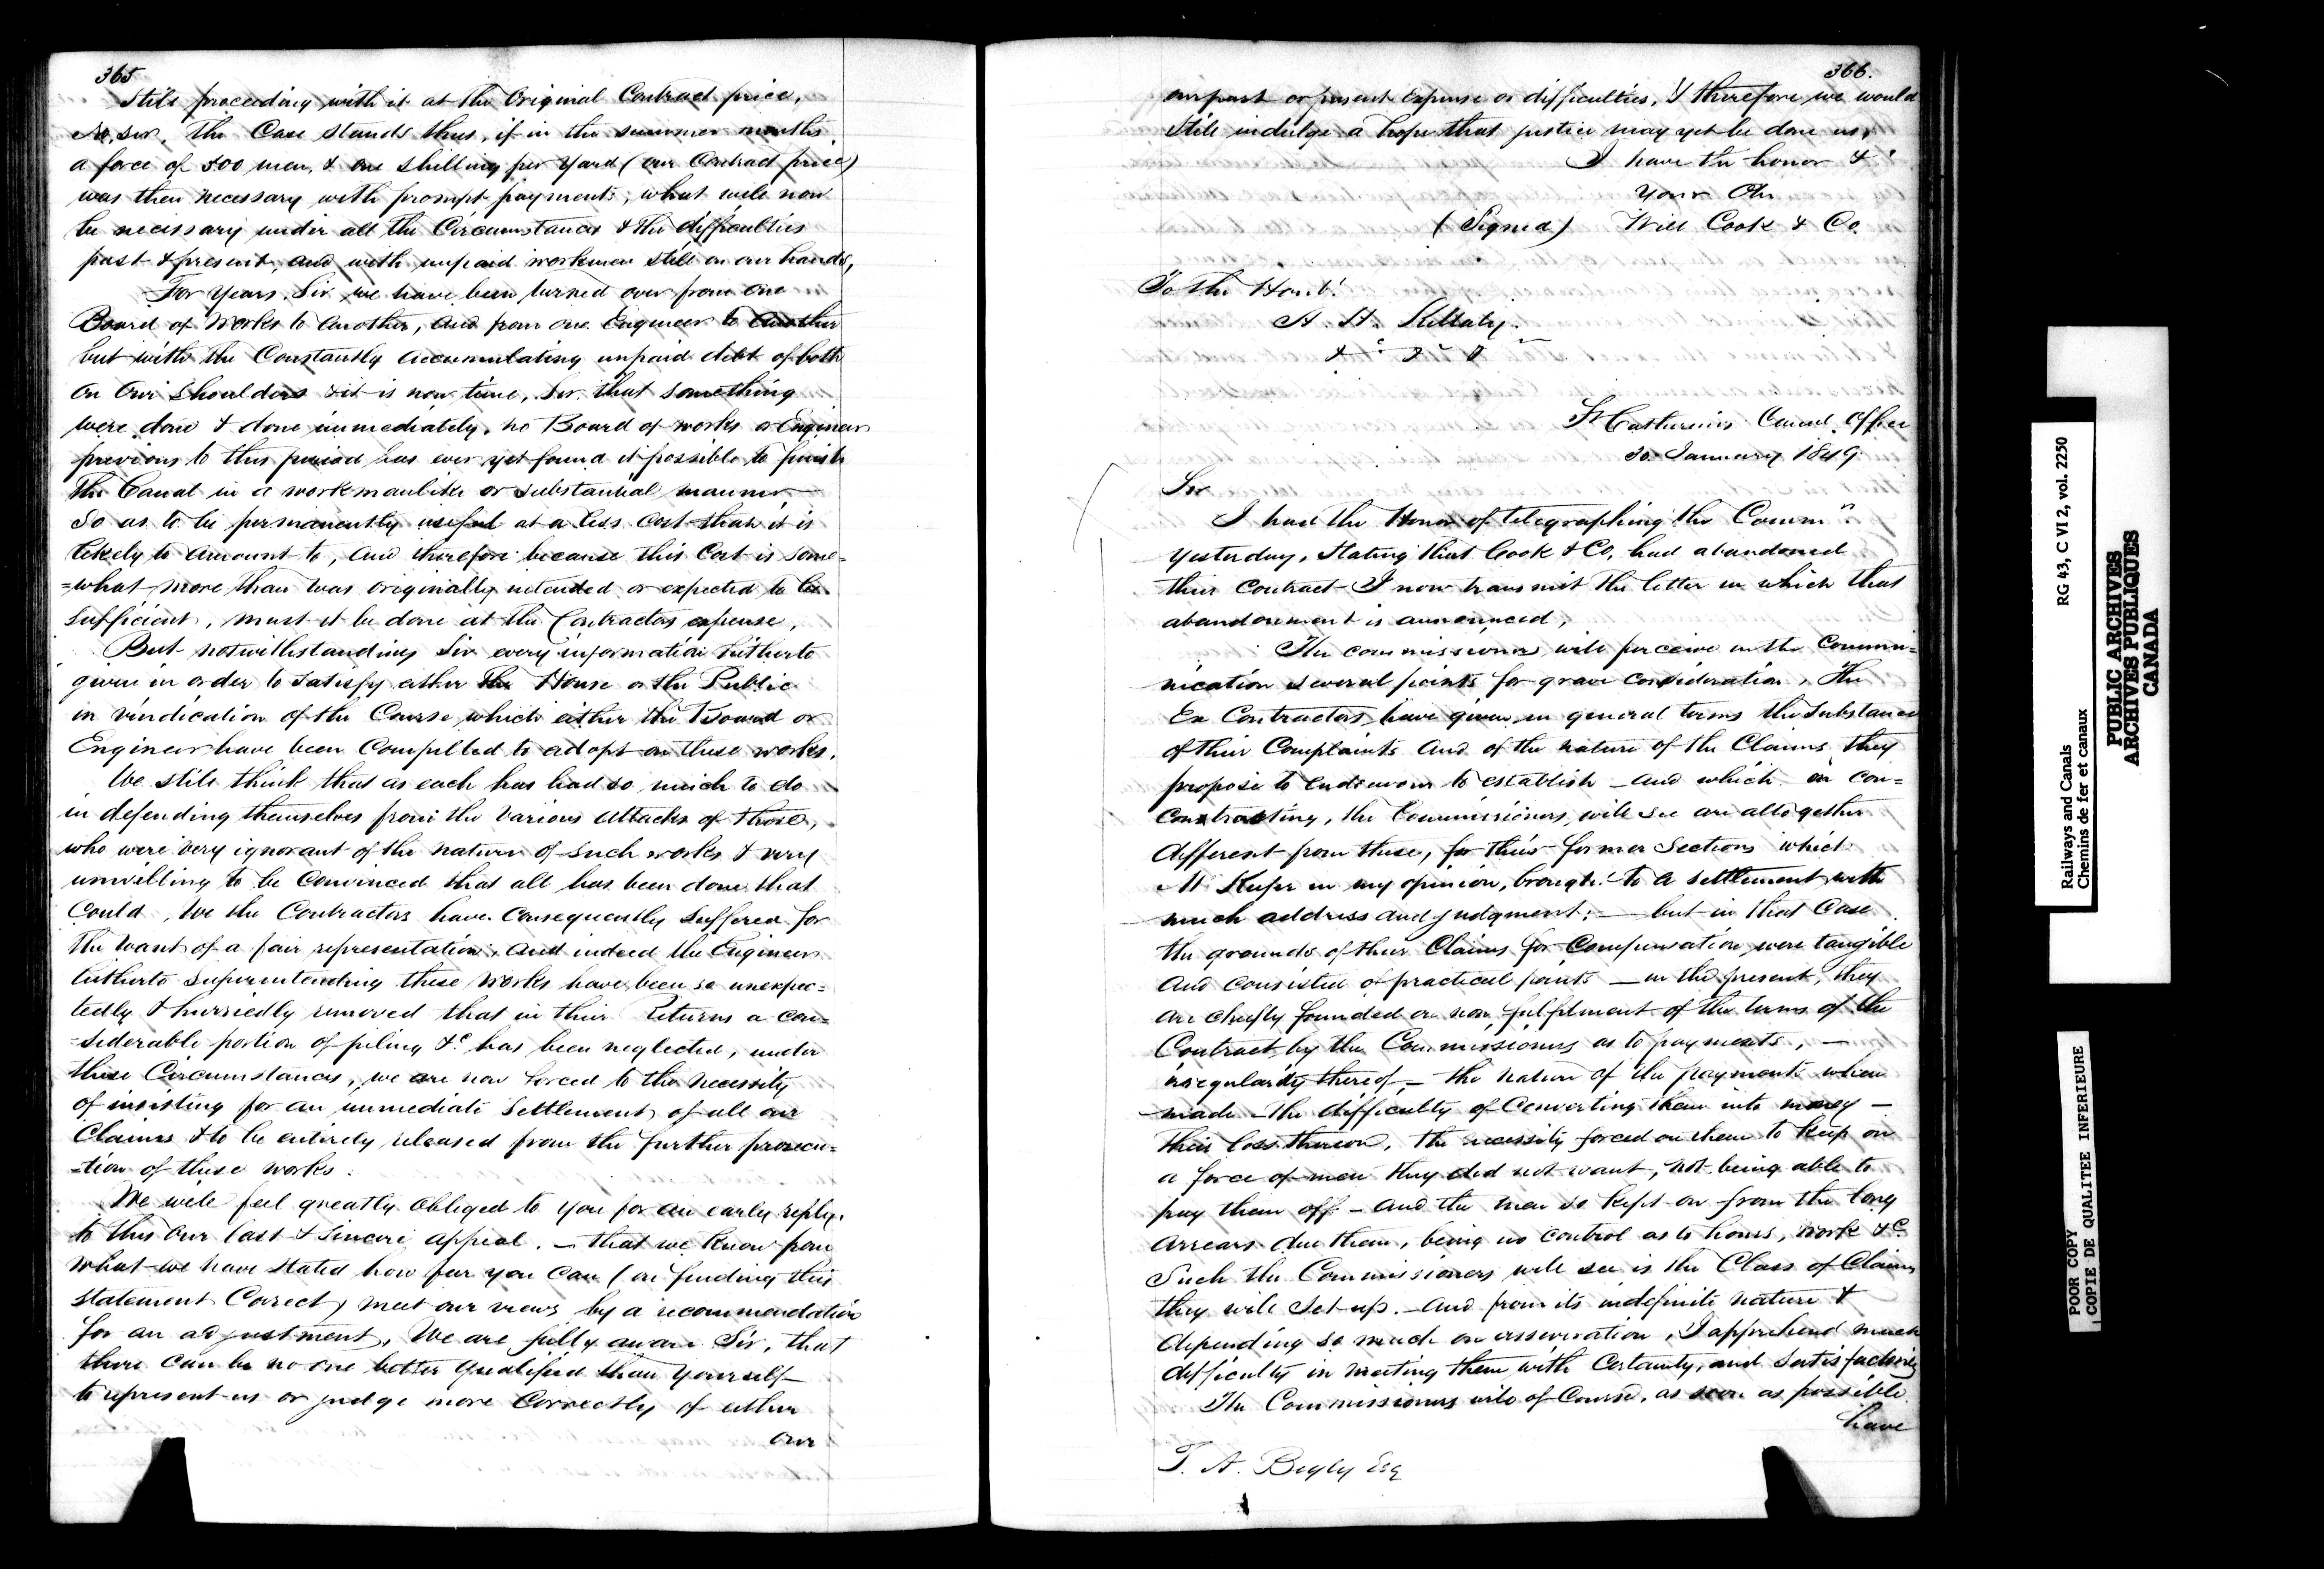 365
Still proceeding with it at the Original Contract price,
No, Sir, the Case stands thus, if in the summer months
a force of 500 men, & one shilling per Yard (our Contract price)
was then necessary with prompt payments, what will now
be necessary under all the Circumstances & the difficulties
past & present, and with unpaid workmen still on our hands,
For Years, Sir, we have been turned over from one
Board of Works to another, and from one Engineer to another
but with the Constantly accumulating unpaid debt of both
on our Shoulders & it is now time, Sir, that something
were done & done immediately, no Board of works or Engineer
previous to this period has ever yet found it possible to finish
the Canal in a workmanlike or substantial manner
So as to be permanently useful at a less cost than it is
likely to amount to, and therefore because this Cost is some=
=what more than was originally intended or expected to be
sufficient, must it be done at the Contractors expense,
But notwithstanding Sir every information hitherto
given in order to satisfy either the House or the Public
in vindication of the Course which either the Board or
Engineer have been Compelled to adopt on these works,
We still think that as each has had so much to do
in defending themselves from the various attacks of those,
who were very ignorant of the nature of such works & very
unwilling to be Convinced that all has been done that
Could, We the Contractors have Consequently suffered for
the want of a fair representation, and indeed the Engineers
hitherto superintending these works have been so unexpec=
tedly & hurriedly removed that in their Returns a con=
=siderable portion of piling &c has been neglected, under
these Circumstances, we are now forced to the necessity
of insisting for an immediate Settlement of all our
Claims & to be entirely released from the further prosecu=
=tion of these works.
We will feel greatly obliged to you for an early reply
to this our last & sincere appeal. – that we know from
what we have stated how far you Can (on finding this
statement Correct) meet our views by a recommendation
for an adjustment, We are fully aware Sir, that
there can be no one better qualified than yourself
to represent us or judge more Correctly of either
our
366.
our past or present Expense or difficulties, & therefore we would
still indulge a hope that justice may yet be done us,
I have the honor &c
Your Obt
(Signed) Will Cook & Co.
To the Honbl
H. H. Killaly
&c &c &c
St Catherines Canal Office
30 January 1849
Sir
I had the Honor of telegraphing the Commrs
Yesterday, Stating that Cook & Co, had abandoned
their Contract I now transmit the letter in which that
abandonment is announced,
The Commissioners will perceive in the Commu=
nication several points for grave consideration, The
Ex Contractors have given in general terms the Substance
of their Complaints and of the nature of the Claims they
propose to endeavour to establish – and which in con=
Contrasting, the Commissioners, will see are altogether
different from those, for their former Sections which
Mr Keefer in my opinion, brought to a settlement with
much address and judgment: – but in that Case
the grounds of their Claims for Compensation were tangible
and consisted of practical points – in the present, they
are chiefly founded on non fulfilment of the terms of the
Contract by the Commissioners as to payments, –
irregularity thereof – the nature of the payments when
made – the difficulty of Converting them into money –
their loss thereon, the necessity forced on them to keep on
a force of men they did not want, not being able to
pay them off – and the men so kept on from the long
arrears due them, being no control as to hours, work &c
Such the Commissioners will see is the Class of Claims
they will set up. – and from its indefinite nature &
depending so much on asseveration, I apprehend much
difficulty in meeting them with Certainty, and satisfactorily
The Commissioners will of Course, as soon as possible
have
T. A. Begly Esq
Railways and Canals
Chemins de fer et canaux
RG 43, C VI 2, vol. 2250
PUBLIC ARCHIVES
ARCHIVES PUBLIQUES
CANADA
POOR COPY
COPIE DE QUALITEE INFERIEURE